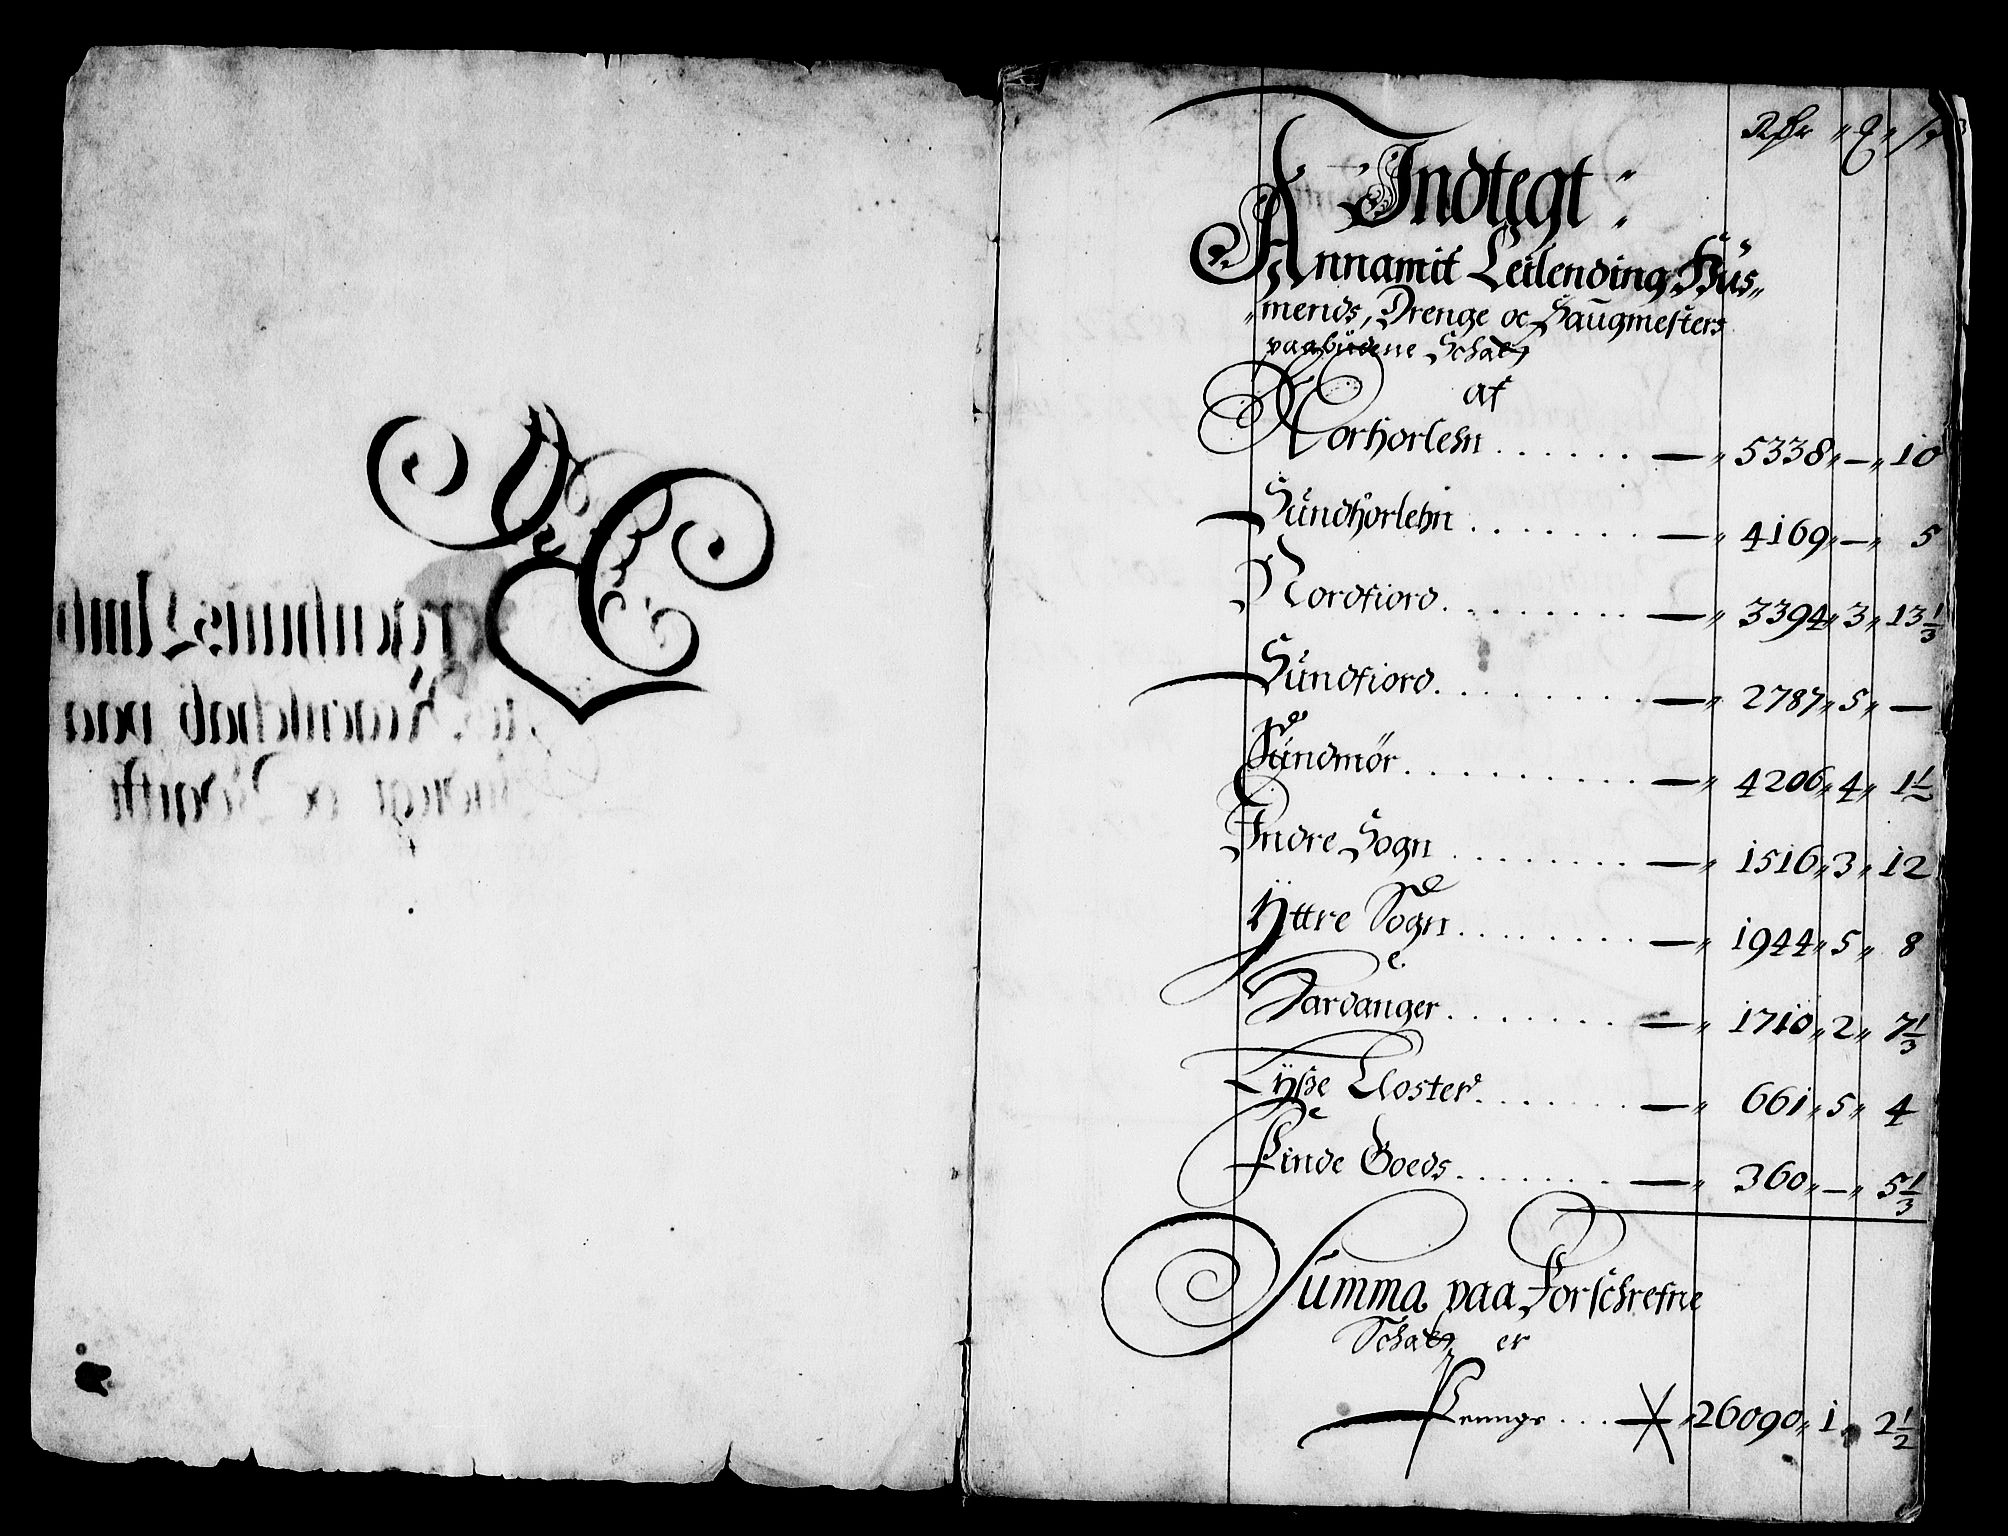 Rdr " q " s
Indtegt:
Annamit Leilending, Hüs„
„mends, Drenge oc Saugmesters
paabüdene Schatt
af
Norhorlehn . . . . . . — „ 5338 „ — „ 10
Sündhorlehn . . . . . . — „ 4169 „ — „ 5
Nordfiord . . . . . . — „ 3394 „ 3 „ 13 1/3
Sündfiord . . . . . . — „ 2787 „ 5 „ —
Sündmör . . . . . . — „ 4206 „ 4 „ 1 1/2
Indre Sogn . . . . . . — „ 1516 „ 3 „ 12
Yttre Sogn . . . . . . — „ 1944 „ 5 „ 8
Hardanger . . . . . . — „ 1710 „ 2 „ 7 1/3
Lÿße Closter . . . . . . — „ 661 „ 5 „ 4
Finde Goeds . . . . . . — „ 360 „ — „ 5 1/3
Summa paa Forschrefne
Schatt er
Penngr . . . — „ 26090 „ 1 „ 2 1/2